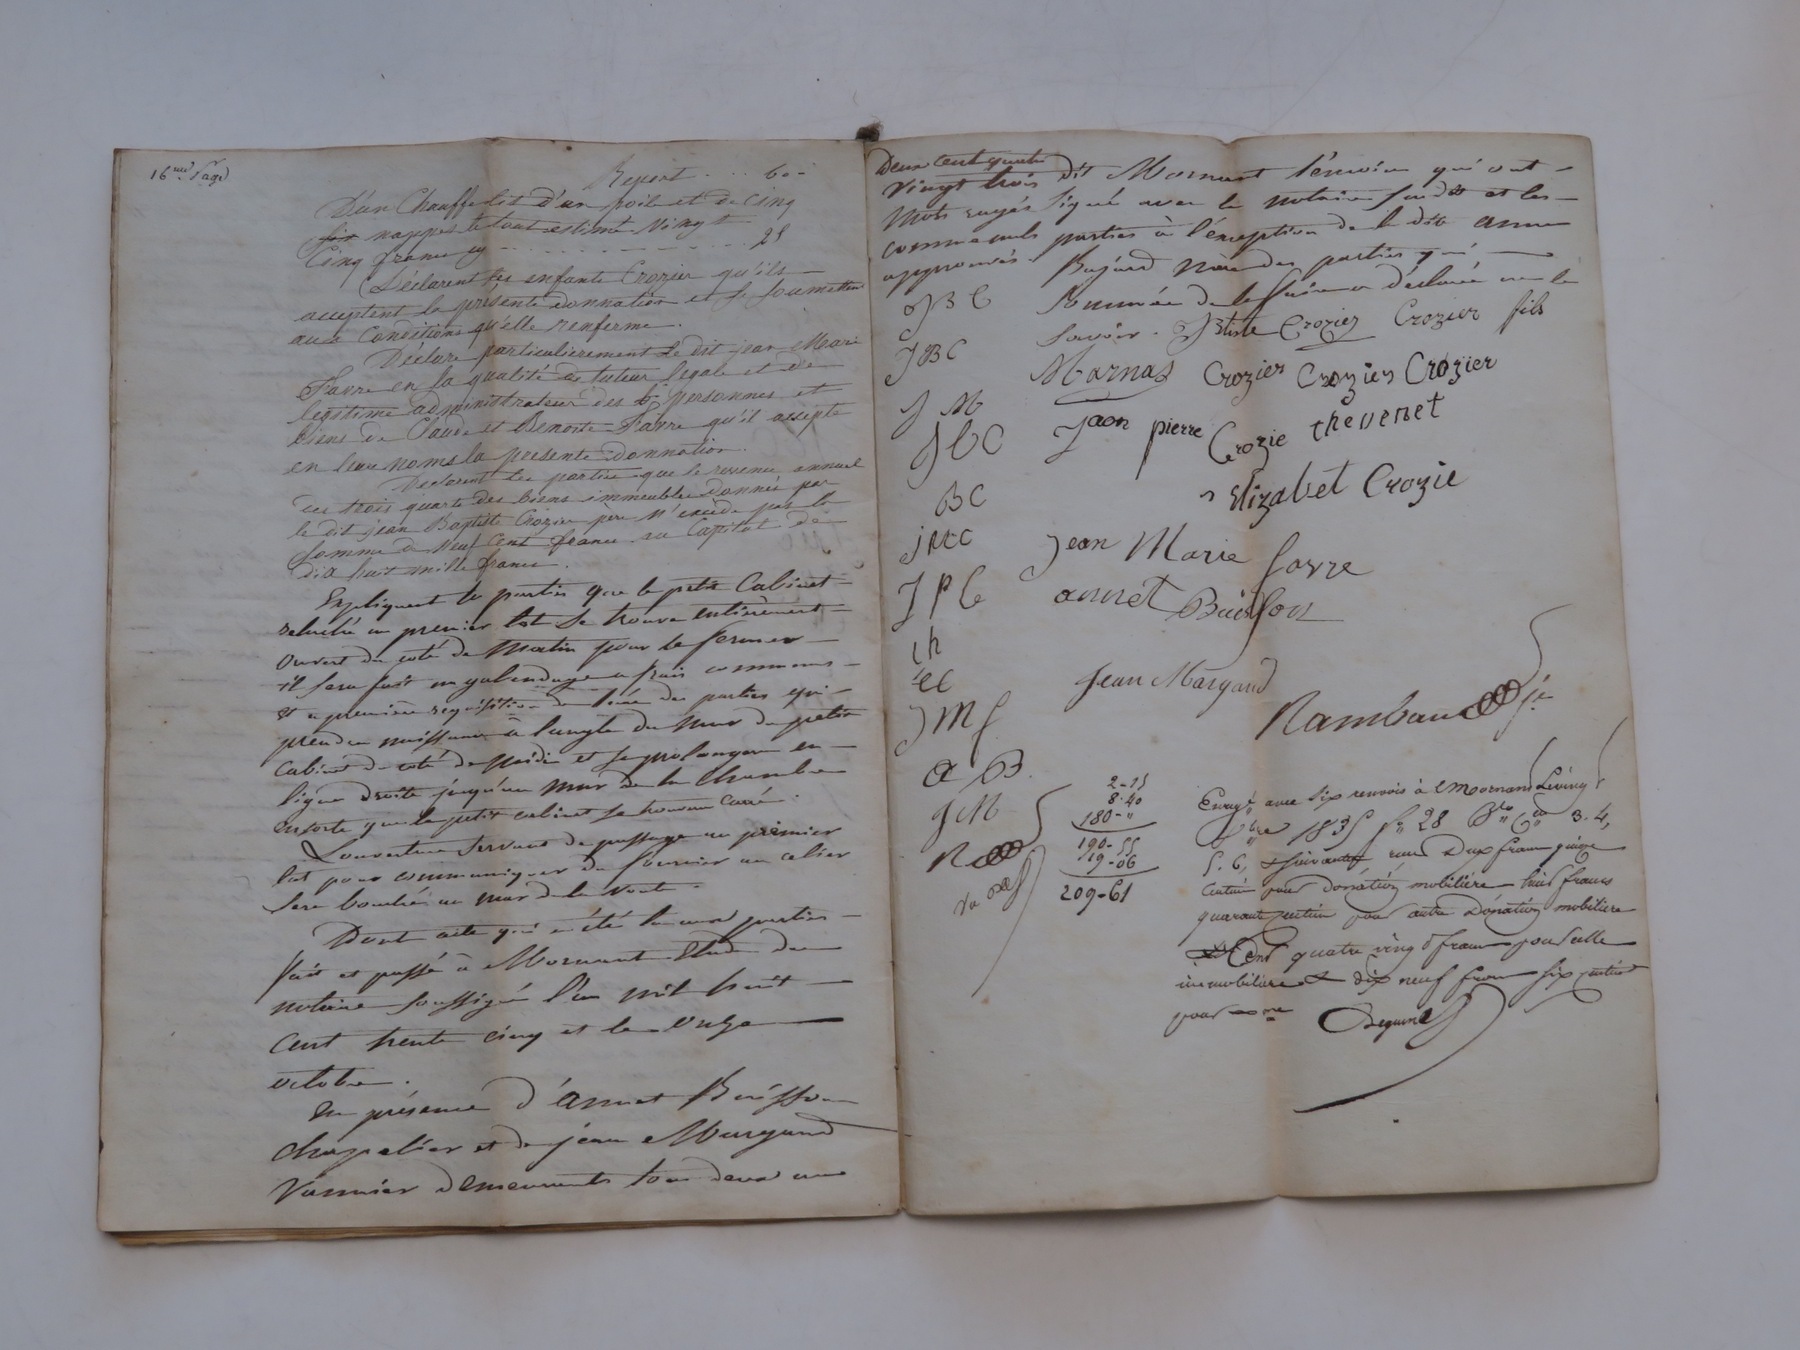 16me Page
Report . . . 60 -
D'un Chauffe lit d'un poile et de Cinq
six nappes le tout estimé Vingt
Cinq francs cy - - - - - - - 25
Déclarent les enfants Crozier qu'ils
acceptent la présente donnation et se soumettent
aux Conditions qu'elle renferme.
Déclare particulierement le dit jean Marie
Favre en sa qualité de tuteur legale et de
legitime administrateur des personnes et
biens de Claude et Benoite Favre qu'il accepte
en leur noms la presente donnation.
Declarent les parties que le revenu annuel
des trois quarts des biens immeubles donnés par
le dit jean Baptiste Crozier père N'excède pas la
somme de Neuf Cent francs au Capital de
dix huit mille francs.
Expliquent les parties que le petit Cabinet
relaché au premier lot se trouve entièrement
ouvert du coté de Matin pour le fermer
il sera fait un galendage a frais communs
et a première requisition de l'une des parties qui
prendra naissance à l'angle du mur du petit
Cabinet du coté de Midi et se prolongera en
ligne droite jusqu'au mur de la Chambre
ensorte que le petit cabinet se trouvera carré.
L'ouverture servant de passage au premier
lot pour communiquer du fournier au celier
sera bouchée au mur de la voute.
Dont acte qui a été lu aux parties
fait et passé à Mornant Etude du
notaire soussigné l'an mil huit
Cent trente cinq et le onze
octobre.
En présence d'Annet Buisson
chapelier et de jean Margand
Vannier demeurants tous deux au
Deux cent quatre
Vingt trois
Mots rayés
comme nuls
approuvés.
dit Mornant témoins qui ont
signé avec le notaire susdit et les
parties à l'exception de la dite anne
Bajard mère des parties qui,
Sommée de le faire a déclaré ne le
Savoir. JBtiste Crozier Crozier fils
Marnas Crozier Crozier Crozier
jean pierre Crozie thevenet
Elizabet Crozie
jean Marie favre
annet Buisson
Jean Margand
Rambaud je
JBC
JBC
J M
J C C
BC
JMC
J P C
th
EC
J M f
A B.
J M
R
2-15
8-40
180- "
190-55
19-06
209-61
Enregé avec six renvois à Mornant Le vingt
8bre 1835 fo 28 Ro Cses 3. 4,
5. 6, & suivantes reçu deux francs quinze
centimes pour donation mobilière huit francs
quarante centimes pour autre donation mobilière
Cent quatre vingt francs pour celle
immobilière & dix neuf francs six centimes
pour xme